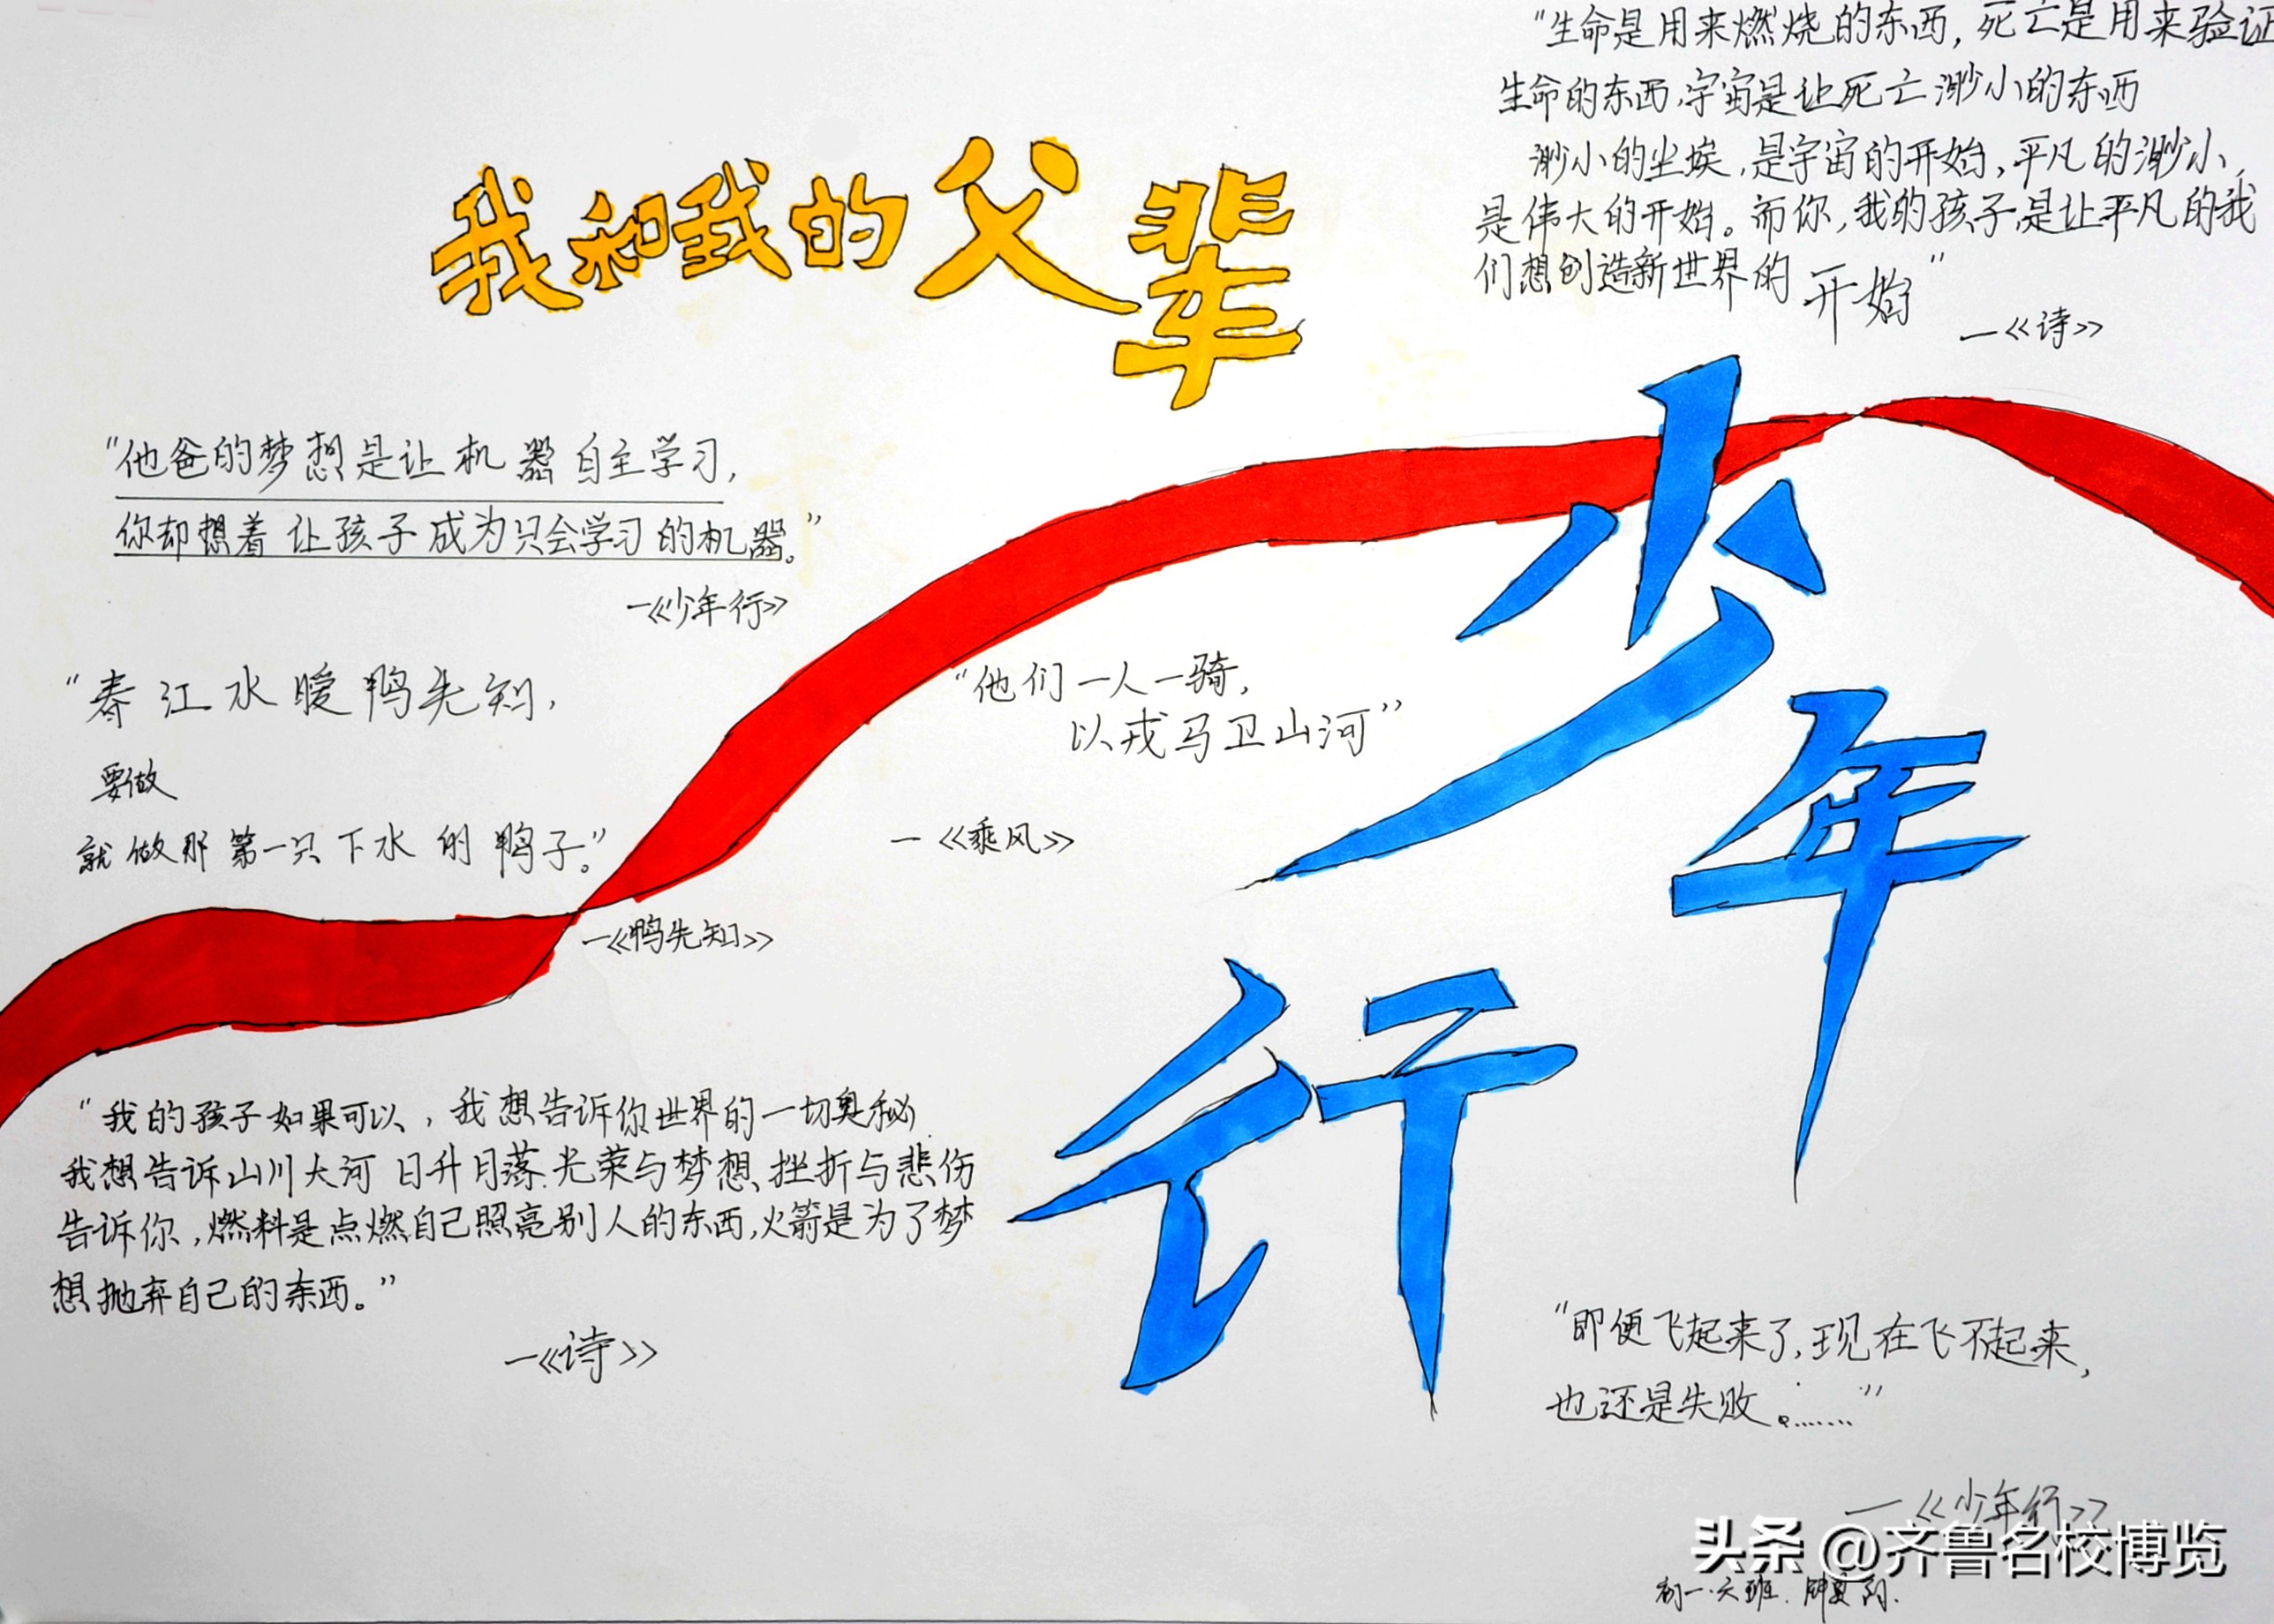 我和我的父辈
“生命是用来燃烧的东西，死亡是用来验证
生命的东西，宇宙是让死亡渺小的东西
渺小的尘埃，是宇宙的开始，平凡的渺小，
是伟大的开始。而你，我的孩子，是让平凡的我
们想创造新世界的开始”
—《诗》
“他爸的梦想是让机器自主学习，
你却想着让孩子成为只会学习的机器。”
—《少年行》
“春江水暖鸭先知，
要做
就做那第一只下水的鸭子。”
—《鸭先知》
“他们一人一骑，
以戎马卫山河”
—《乘风》
少年行
“我的孩子如果可以，我想告诉你世界的一切奥秘
我想告诉山川大河 日升月落.光荣与梦想、挫折与悲伤
告诉你，燃料是点燃自己照亮别人的东西，火箭是为了梦
想抛弃自己的东西。”
—《诗》
“即便飞起来了，现在飞不起来，
也还是失败。……”
—《少年行》
头条 @齐鲁名校博览
初一.六班.